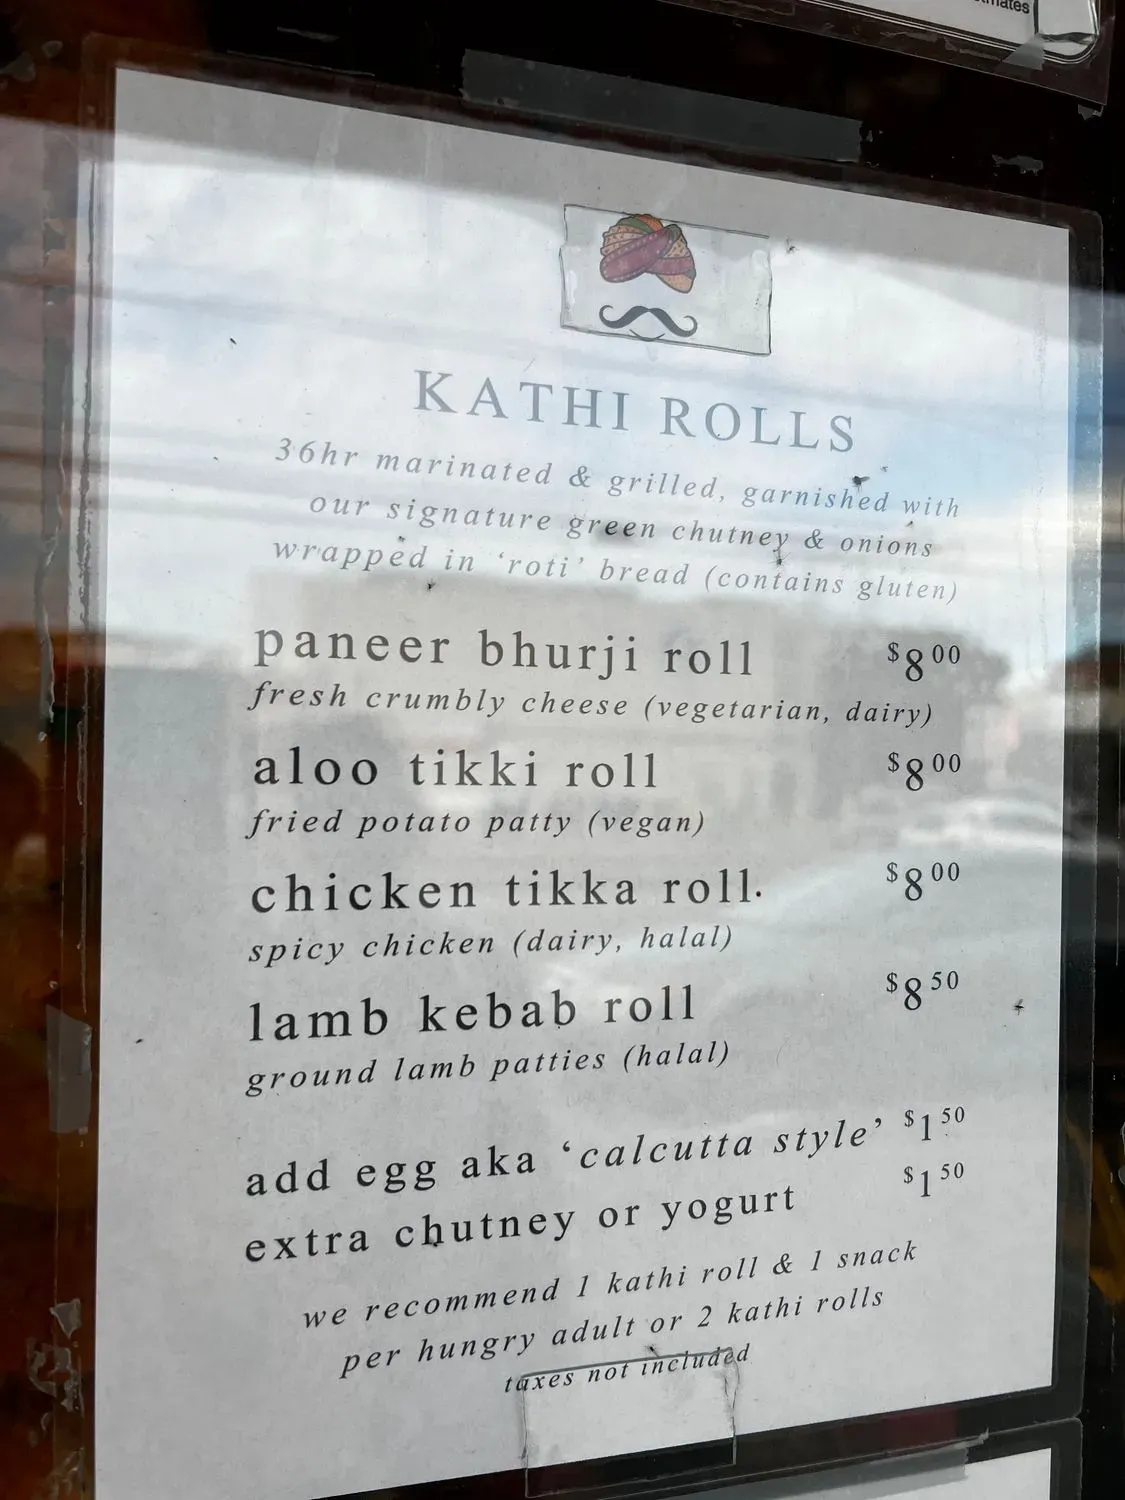 KATHI ROLLS
36hr marinated & grilled, garnished with
our signature green chutney & onions
wrapped in ‘roti’ bread (contains gluten)
paneer bhurji roll $8 00
fresh crumbly cheese (vegetarian, dairy)
aloo tikki roll $8 00
fried potato patty (vegan)
chicken tikka roll. $8 00
spicy chicken (dairy, halal)
lamb kebab roll $8 50
ground lamb patties (halal)
add egg aka ‘calcutta style’ $1 50
extra chutney or yogurt $1 50
we recommend 1 kathi roll & 1 snack
per hungry adult or 2 kathi rolls
taxes not included